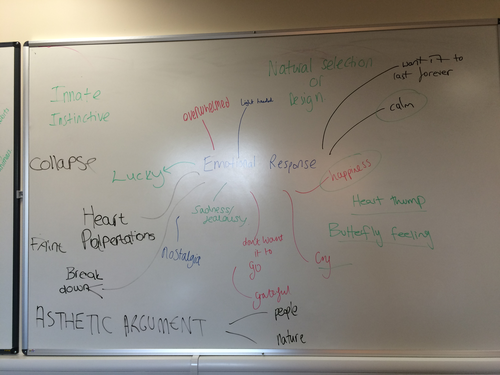 Natural selection
or
Design
want it to
last forever
calm
Innate
Instinctive
overwhelmed
Light headed
collapse
Lucky
Emotional Response
happiness
Heart
Palpertations
Faint
Sadness/
jealousy
Heart thump
Butterfly feeling
nostalgia
don't want
it to
go
Cry
Break
down
grateful
people
ASTHETIC ARGUMENT
nature